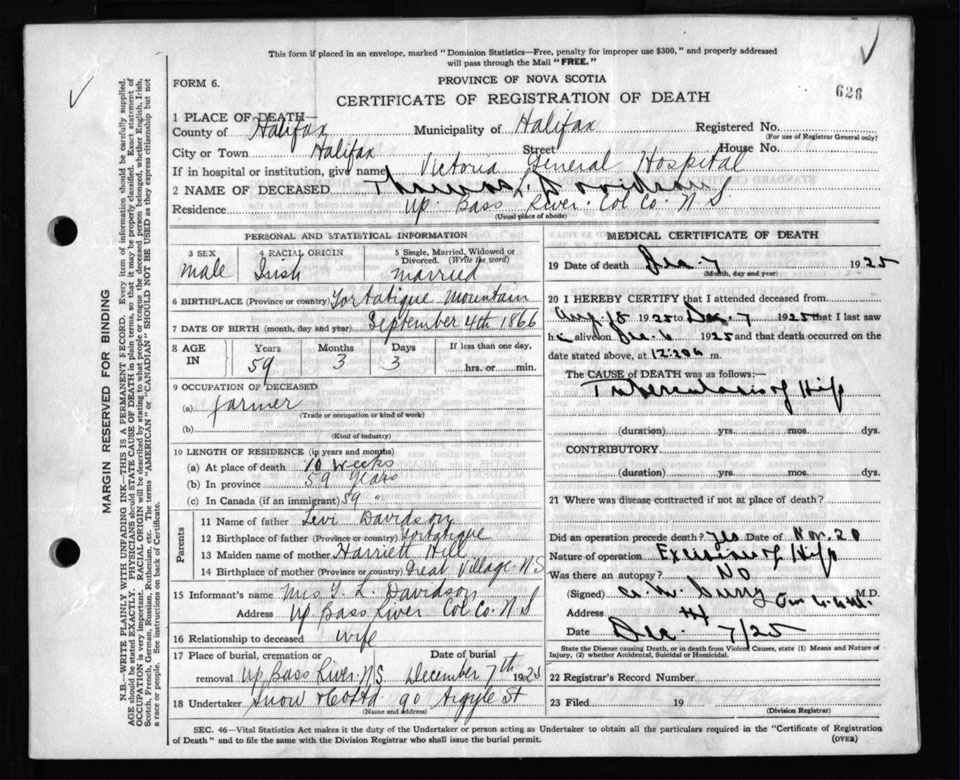 This form if placed in an envelope, marked "Dominion Statistics—Free, penalty for improper use $300," and properly addressed
will pass through the Mail "FREE."
FORM 6.
PROVINCE OF NOVA SCOTIA
626
CERTIFICATE OF REGISTRATION OF DEATH
1 PLACE OF DEATH—
County of Halifax Municipality of Halifax Registered No.
(For use of Registrar General only)
City or Town Halifax Street House No.
If in hospital or institution, give name Victoria General Hospital
2 NAME OF DECEASED Thomas L. Davidson
Residence Up. Bass River. Col Co. N S.
(Usual place of abode)
PERSONAL AND STATISTICAL INFORMATION
3 SEX 4 RACIAL ORIGIN 5 Single, Married, Widowed or
Divorced. (Write the word)
male Irish married
6 BIRTHPLACE (Province or country) Portatique Mountain
7 DATE OF BIRTH (month, day and year) September 4th 1866
8 AGE IN Years Months Days If less than one day,
59 3 3 hrs. or min.
9 OCCUPATION OF DECEASED
(a) farmer
(Trade or occupation or kind of work)
(b)
(Kind of industry)
10 LENGTH OF RESIDENCE (in years and months)
(a) At place of death 10 weeks
(b) In province 59 years
(c) In Canada (if an immigrant) 59 "
Parents
11 Name of father Levi Davidson
12 Birthplace of father (Province or country) Portatique
13 Maiden name of mother Harriett Hill
14 Birthplace of mother (Province or country) Great Village N S
15 Informant's name Mrs T. L. Davidson
Address Up Bass River Col Co. N S
16 Relationship to deceased wife
17 Place of burial, cremation or Date of burial
removal Up Bass River. N S. December 7th 1925
18 Undertaker Snow & Co Ltd 90 Argyle St
(Name and address)
MEDICAL CERTIFICATE OF DEATH
19 Date of death Dec. 7 1925
(Month, day and year)
20 I HEREBY CERTIFY that I attended deceased from
Aug. 1925 to Dec. 7 1925 that I last saw
h alive on Dec. 6 1925 and that death occurred on the
date stated above, at 12.20 m.
The CAUSE of DEATH was as follows:—
Tuberculosis of Hip
(duration) yrs. mos. dys.
CONTRIBUTORY
(duration) yrs. mos. dys.
21 Where was disease contracted if not at place of death?
Did an operation precede death? yes Date of Nov. 20
Nature of operation Excision of Hip
Was there an autopsy? No
(Signed) M.D.
Address
Date Dec. 7/25
State the Disease causing Death, or in death from Violent Causes, state (1) Means and Nature of
Injury, (2) whether Accidental, Suicidal or Homicidal.
22 Registrar's Record Number
23 Filed 19
(Division Registrar)
SEC. 46—Vital Statistics Act makes it the duty of the Undertaker or person acting as Undertaker to obtain all the particulars required in the "Certificate of Registration
of Death" and to file the same with the Division Registrar who shall issue the burial permit.
(OVER)
MARGIN RESERVED FOR BINDING
N.B.—WRITE PLAINLY WITH UNFADING INK—THIS IS A PERMANENT RECORD. Every item of information should be carefully supplied.
AGE should be stated EXACTLY. PHYSICIANS should STATE CAUSE OF DEATH in plain terms, so that it may be properly classified. Exact statement of
OCCUPATION is very important. RACIAL ORIGIN will be described by stating to what people or tongue the deceased person belonged, whether English, Irish,
Scotch, French, German, Russian, Ruthenian, etc. The terms "AMERICAN" or "CANADIAN" SHOULD NOT BE USED as they express citizenship but not
a race or people. See instructions on back of Certificate.